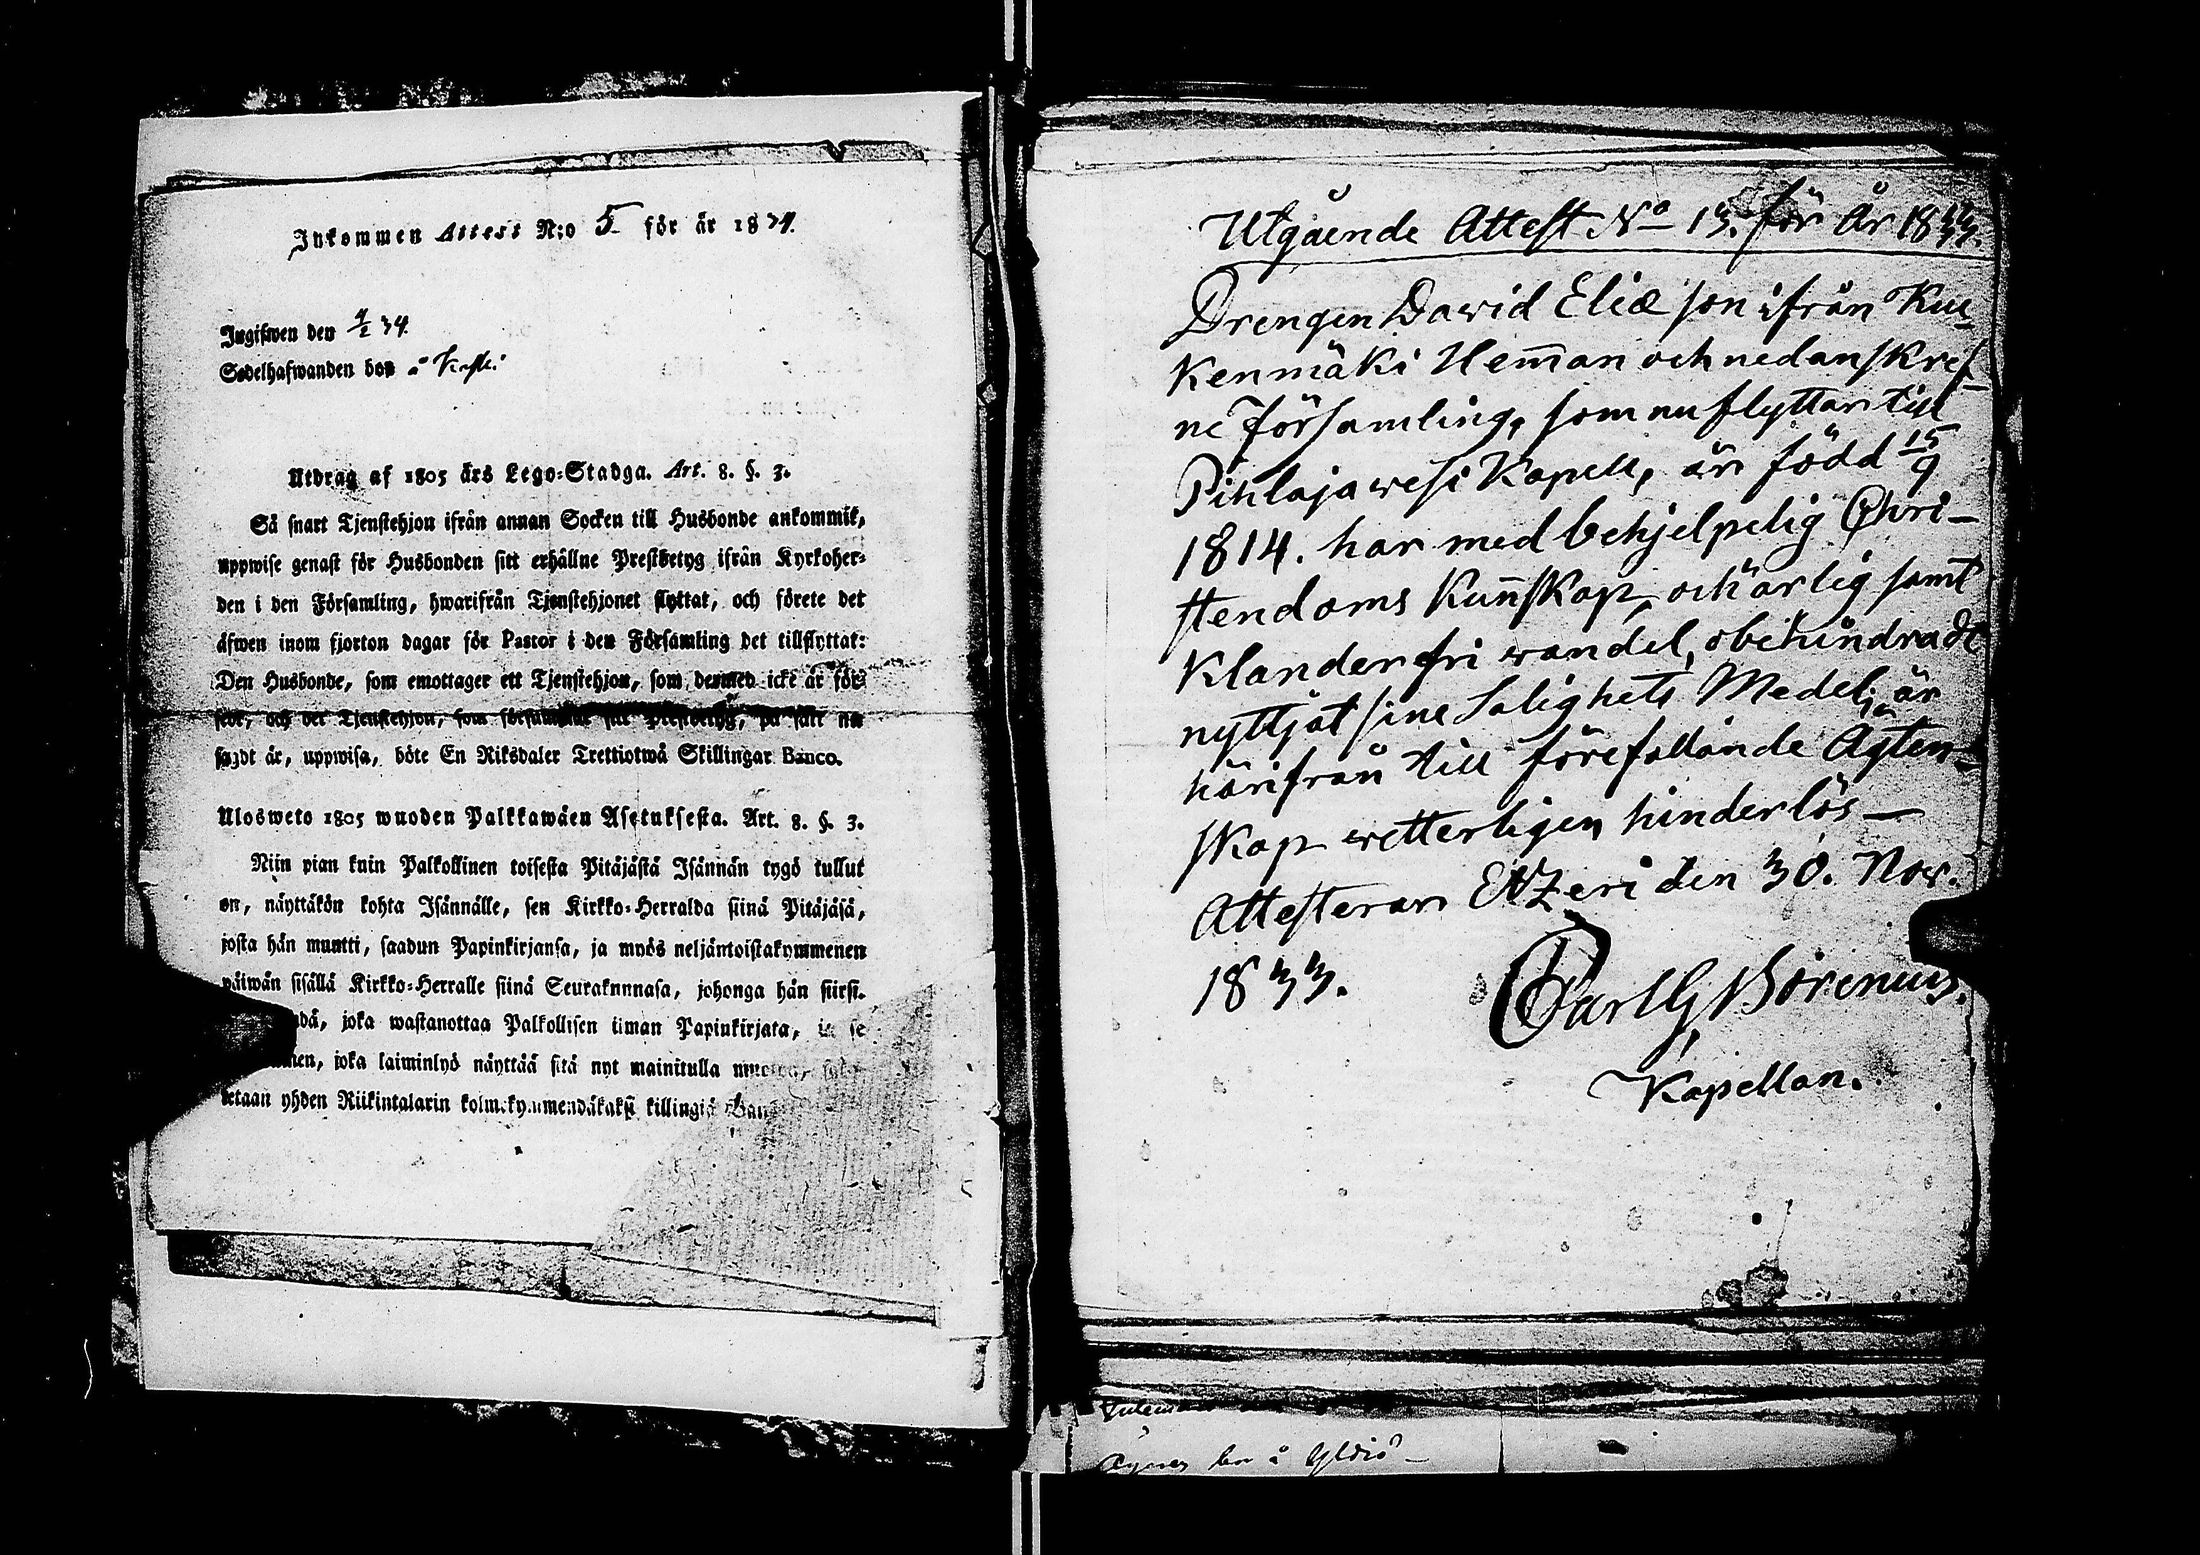 Inkommen Attest N:o 5 för år 1834.
Ingifwen den 4/2 34.
Sedelhafwanden bor å
Utdrag af 1805 års Lego-Stadga. Art. 8. §. 3.
Så snart Tjenstehjon ifrån annan Socken till Husbonde ankommit,
uppwise genast för Husbonden sitt erhållne Prestbetyg ifrån Kyrkoher-
den i den Församling, hwarifrån Tjenstehjonet flyttat, och förete det
äfwen inom fjorton dagar för Pastor i den Församling det tillflyttat:
Den Husbonde, som emottager ett Tjenstehjon, som dermed icke är för-
sedt, och det Tjenstehjon, som försummar sitt Prestbetyg, på sätt nu
sagdt är, uppwisa, böte En Riksdaler Trettiotwå Skillingar Banco.
Ulosweto 1805 wuoden Palkkawäen Asetuksesta. Art. 8. §. 3.
Niin pian kuin Palkollinen toisesta Pitäjästä Isännän tygö tullut
on, näyttäkön kohta Isännälle, sen Kirkko-Herralda siinä Pitäjäsä,
josta hän muutti, saadun Papinkirjansa, ja myös neljäntoistakymmenen
päiwän sisällä Kirkko-Herralle siinä Seurakunnasa, johonga hän siirsi.
joka wastanottaa Palkollisen ilman Papinkirjata, ja se
joka laiminlyö näyttää sitä nyt mainitulla
tetaan yhden Riikintalarin kolmekymmendäkaksi killingiä
Utgående Attest No 13. för År 1833.
Drengen Dawid Eliæ son ifrån Kuc-
kenmäki Hem̄an och nedanskref-
ne Församling, som nu flyttar till
Pihlajawesi Kapell, är född 15/9
1814. har med behjelpelig Chri-
stendoms Kun̄skap, och ärlig samt
klanderfri wandel, obehindradt
nyttjat sine Salighets Medel; är
härifrån till förefallande Ägten-
skap wetterligen hinderlös —
Attesterar Etzeri den 30. Nov.
1833. Carl G Borenius.
Kapellan.